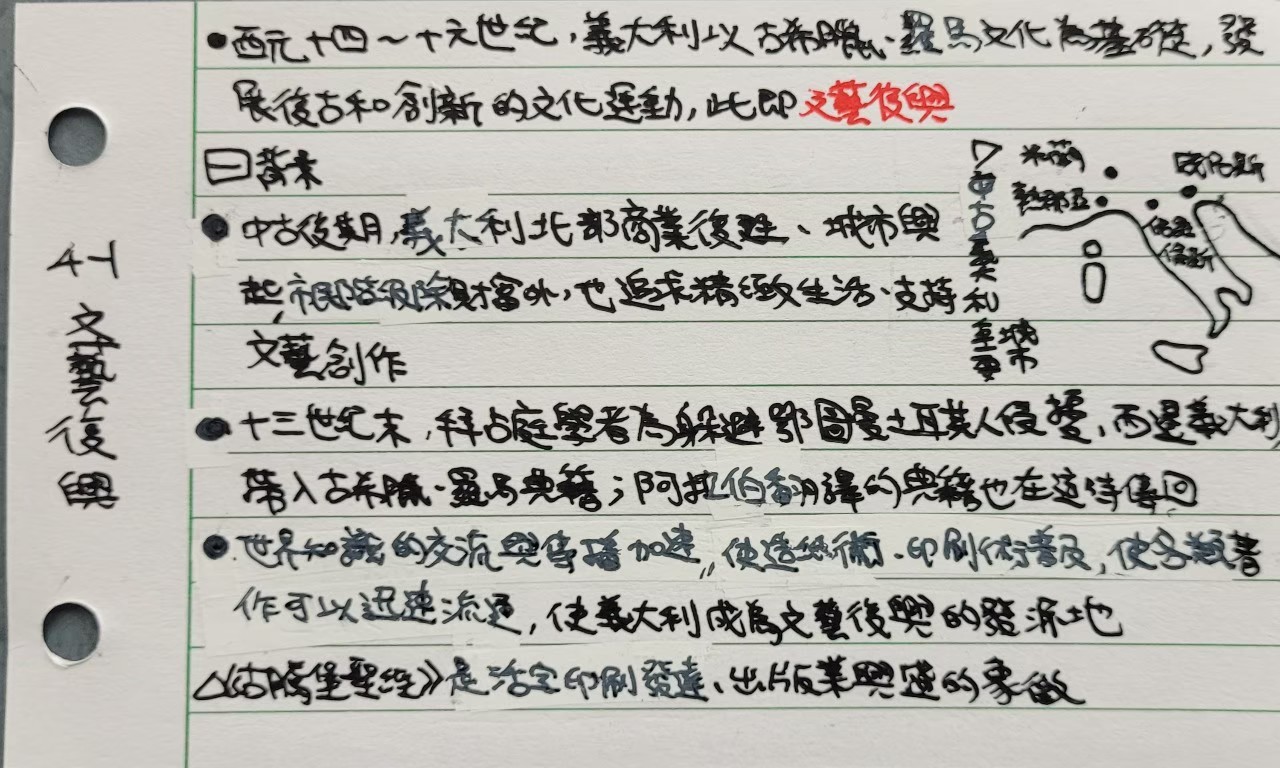 4-1 文藝復興
•西元十四～十六世紀，義大利以古希臘、羅馬文化為基礎，發
展復古和創新的文化運動，此即文藝復興
㊀背景
•中古後期，義大利北部商業復甦、城市興
起，市民階級除財富外，也追求精緻生活、支持
文藝創作
▽中古義大利重要城市
米蘭
威尼斯
熱那亞
佛羅
倫斯
•十三世紀末，拜占庭學者為躲避鄂圖曼土耳其人侵擾，西遷義大利
帶入古希臘、羅馬典籍；阿拉伯翻譯的典籍也在這時傳回
•世界知識的交流與傳播加速，使造紙術、印刷術普及，使各類著
作可以迅速流通，使義大利成為文藝復興的發源地
△《古騰堡聖經》是活字印刷發達、出版業興盛的象徵